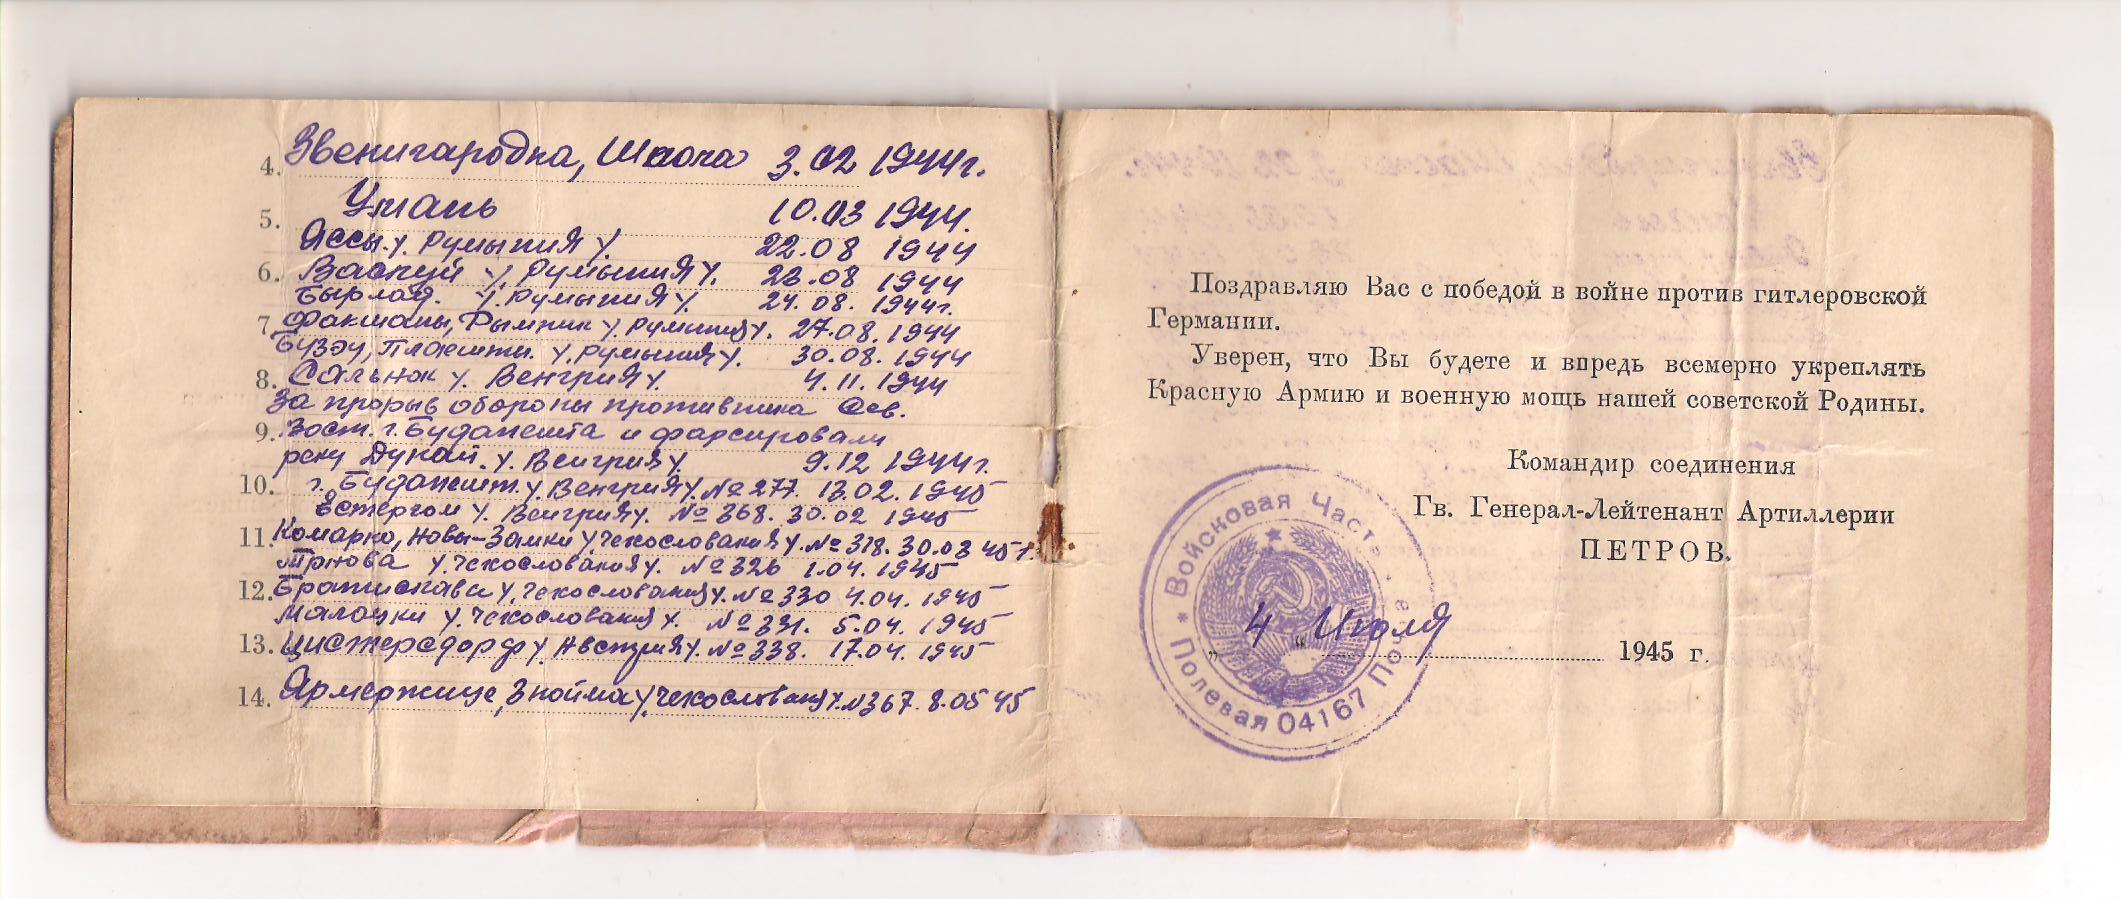 4. Звенигародка, Шпола 3.02 1944г.
5. Умань 10.03 1944.
Яссы. У. Румыния У. 22.08 1944
6. Васлуй У. Румыния У. 23.08 1944
Бырлад. У. Румыния У. 24.08. 1944г.
7. Фокшаны, Рымник У. Румыния У. 27.08. 1944
Бузэу, Плоешти. У. Румыния У. 30.08. 1944
8. Сольнок У. Венгрия У. 4.11. 1944
За прорыв обороны противника Сев.
9. Вост. г. Будапешта и фарсировали
реку Дунай. У. Венгрия У. 9.12 1944г.
10. г. Будапешт. У. Венгрия У. № 277. 13.02. 1945
Естергом У. Венгрия У. № 368. 30.02 1945
11. Комарно, Новы-Замки У. Чехословакия У. № 318. 30.03 45г.
Трнова У. Чехословакия У. № 326 1.04. 1945
12. Братислава У. Чехословакия У. № 330 4.04. 1945
Малацки У. Чехословакия У. № 331. 5.04. 1945
13. Цистерсдорф У. Австрия У. № 338. 17.04. 1945
14. Ярмержице, Знойма У. Чехословакия У. № 367. 8.05 45
Поздравляю Вас с победой в войне против гитлеровской
Германии.
Уверен, что Вы будете и впредь всемерно укреплять
Красную Армию и военную мощь нашей советской Родины.
Командир соединения
Гв. Генерал-Лейтенант Артиллерии
ПЕТРОВ.
„ 4 “ Июля 1945 г.
Войсковая Часть
Полевая 04167